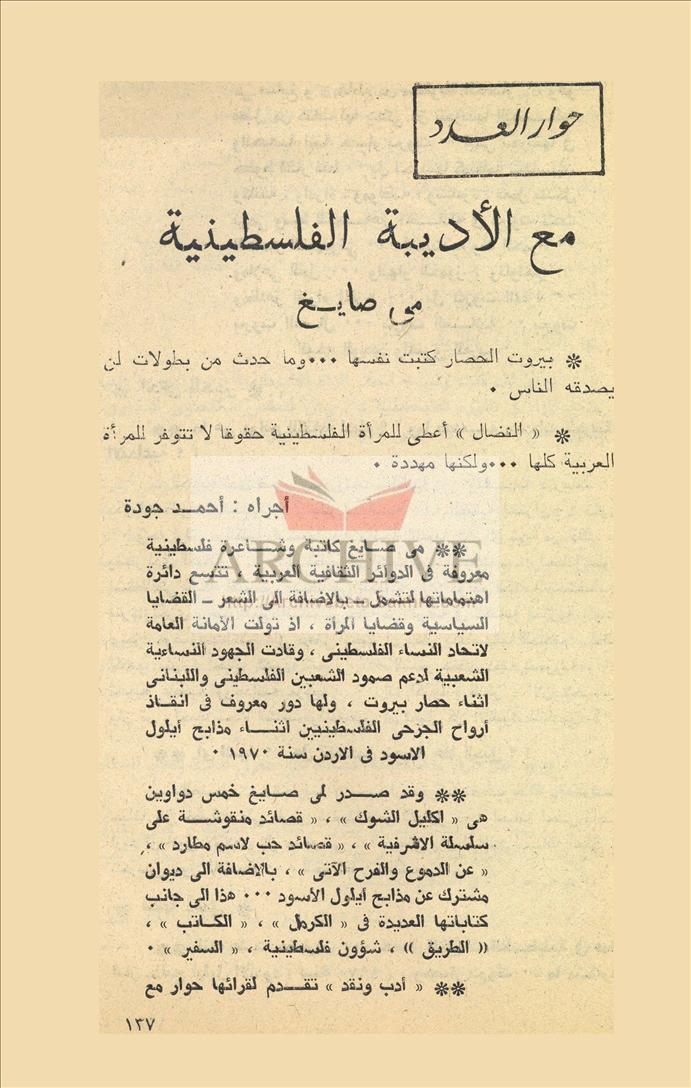 حوار العدد
مع الأديبة الفلسطينية
مى صايغ
※ بيروت الحصار كتبت نفسها ٠٠٠ وما حدث من بطولات لن
يصدقه الناس ٠
※ « النضال » أعطى للمرأة الفلسطينية حقوقا لا تتوفر للمرأة
العربية كلها ٠٠٠ ولكنها مهددة ٠
أجراه : أحمد جودة
※※ مى صايغ كاتبة وشاعرة فلسطينية
معروفة فى الدوائر الثقافية العربية ، تتسع دائرة
اهتماماتها لتشمل ــ بالاضافة الى الشعر ــ القضايا
السياسية وقضايا المرأة ، اذ تولت الأمانة العامة
لاتحاد النساء الفلسطينى ، وقادت الجهود النسائية
الشعبية لدعم صمود الشعبين الفلسطينى واللبنانى
اثناء حصار بيروت ، ولها دور معروف فى انقاذ
أرواح الجرحى الفلسطينيين اثناء مذابح أيلول
الاسود فى الاردن سنة ١٩٧٠ ٠
※※ وقد صدر لمى صايغ خمس دواوين
هى « اكليل الشوك » ، « قصائد منقوشة على
سلسلة الاشرفية » ، « قصائد حب لاسم مطارد » ،
« عن الدموع والفرح الآتى » ، بالاضافة الى ديوان
مشترك عن مذابح أيلول الأسود ٠٠٠ هذا الى جانب
كتاباتها العديدة فى « الكرمل » ، « الكاتب » ،
« الطريق » ، شؤون فلسطينية ، « السفير » ٠
※※ « أدب ونقد » تقدم لقرائها حوار مع
١٣٧
ARCHIVE